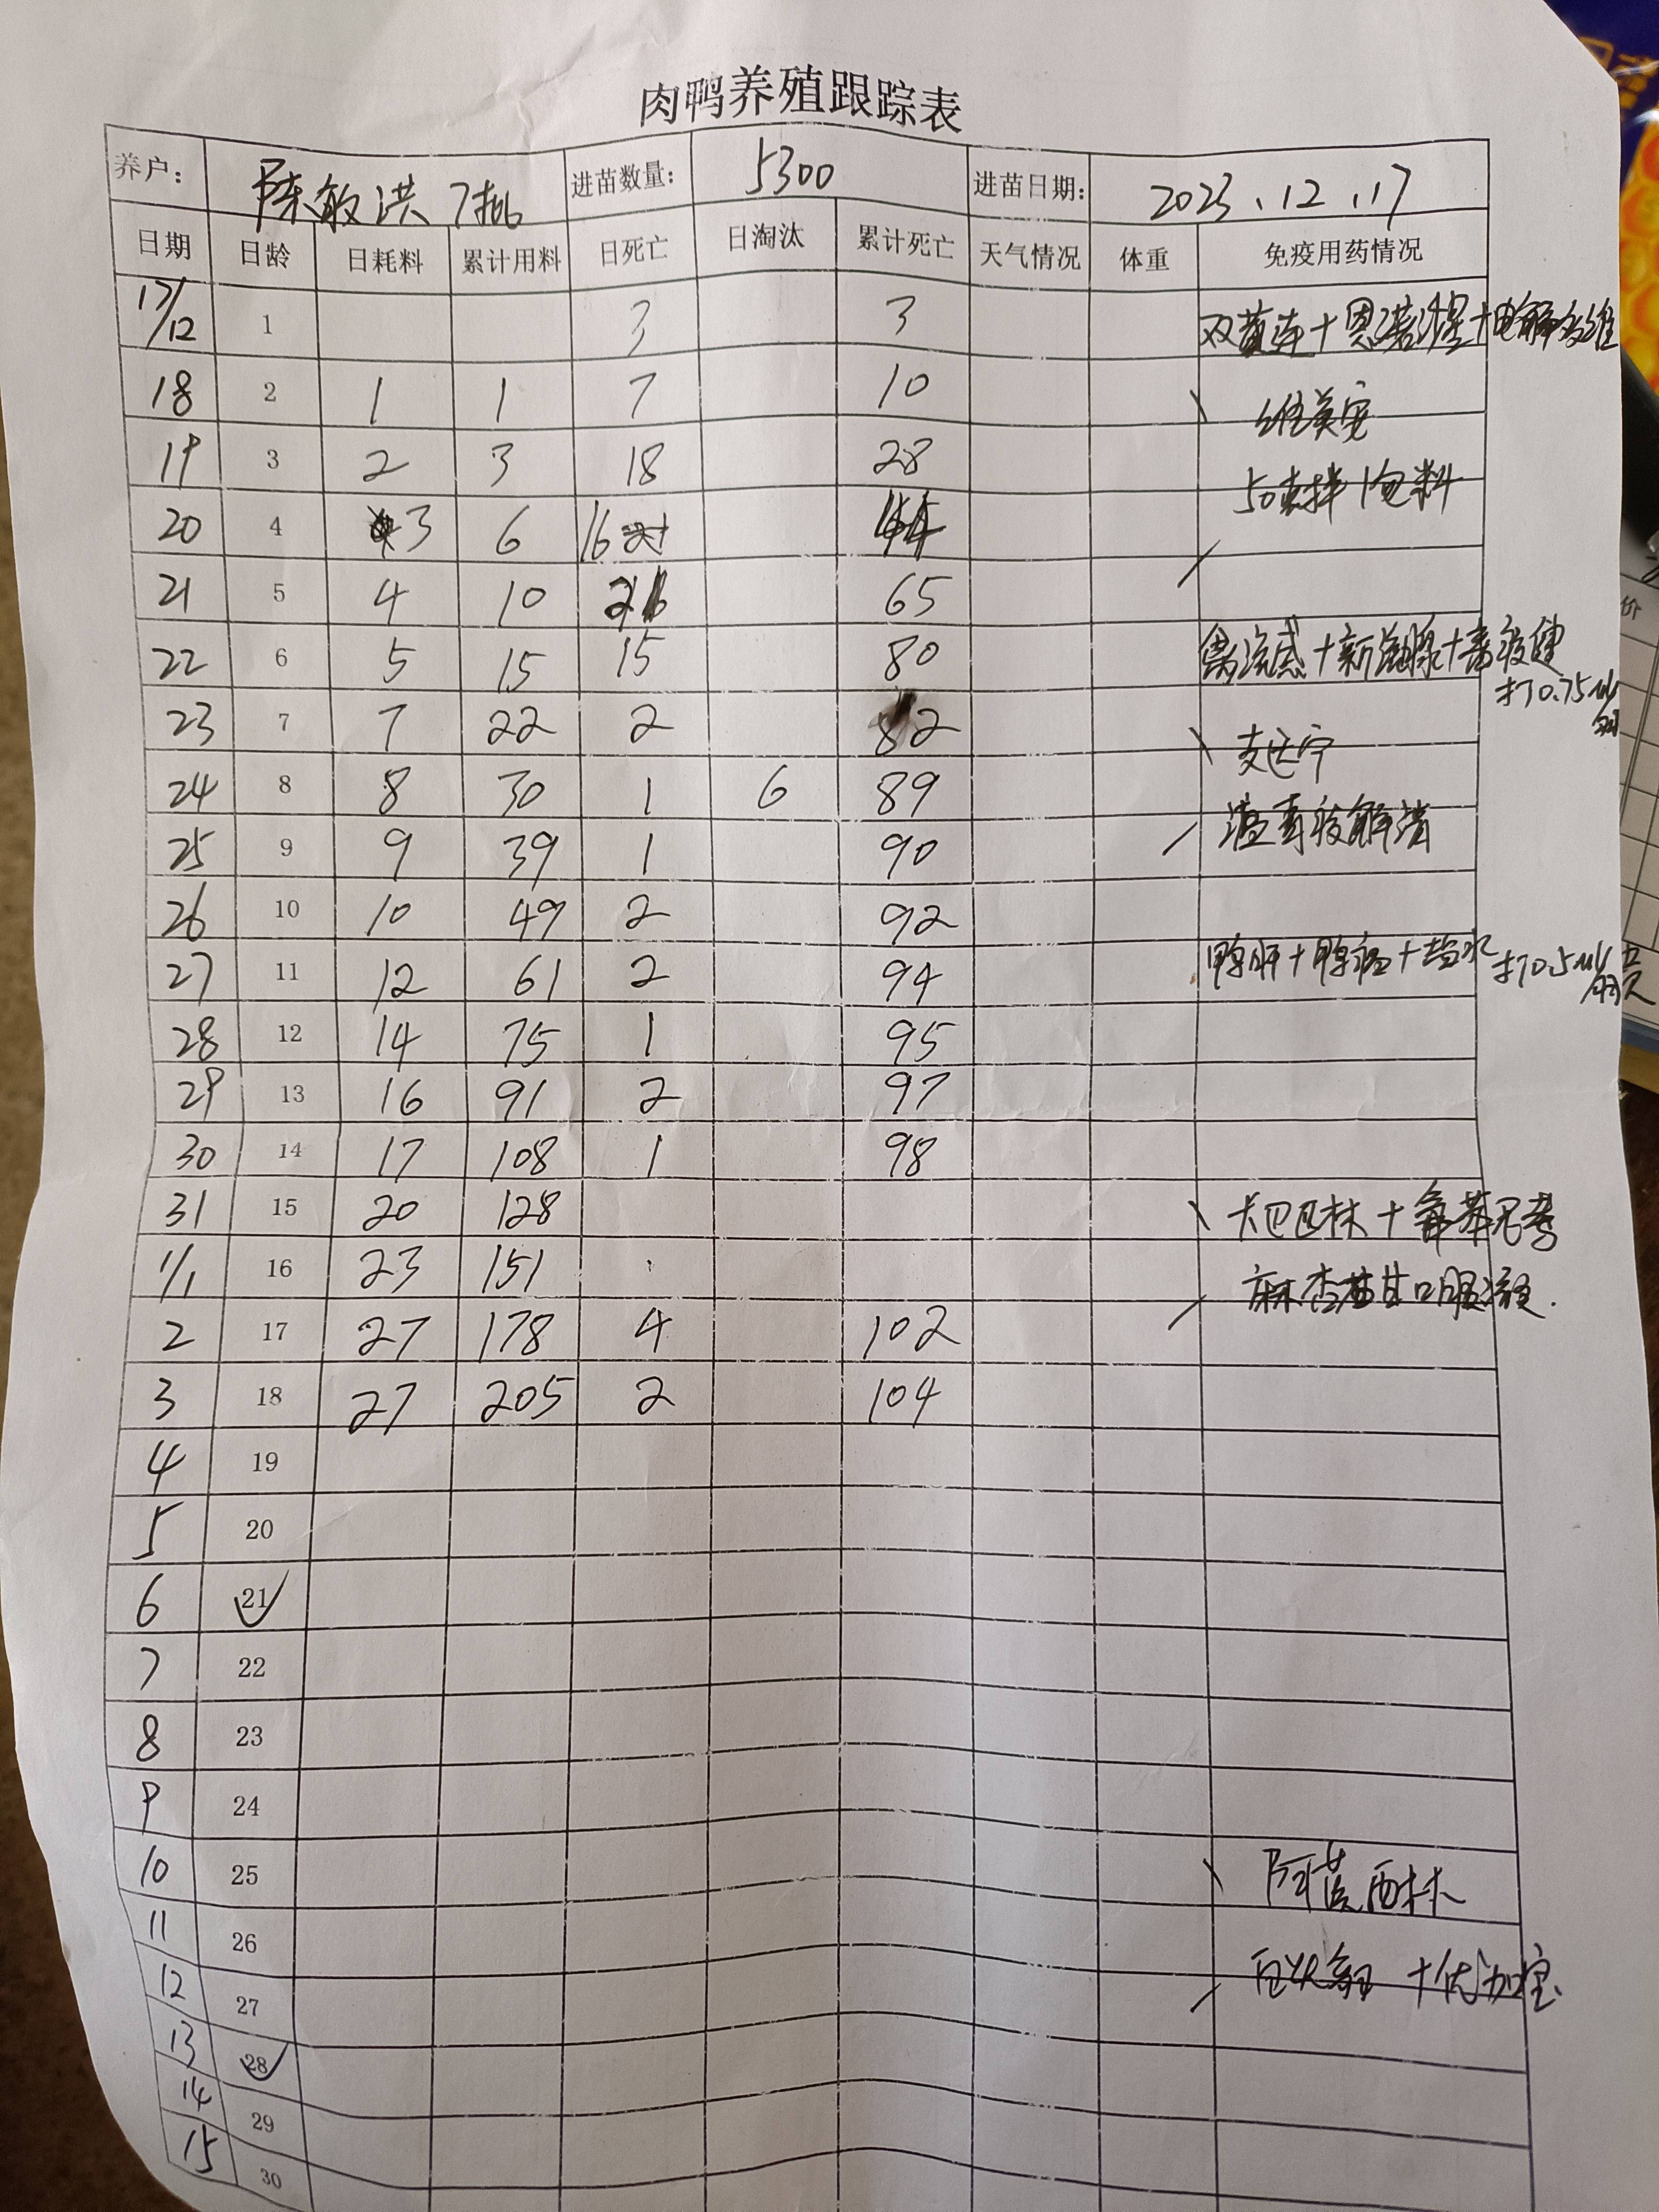 肉鸭养殖跟踪表
养户： 陈敏洪 7批 进苗数量： 5300 进苗日期： 2023.12.17
日期 日龄 日耗料 累计用料 日死亡 日淘汰 累计死亡 天气情况 体重 免疫用药情况
17/12 1 3 3 双黄连+恩诺沙星+电解多维
18 2 1 1 7 10 维美宝
19 3 2 3 18 28 50克拌1包料
20 4 3 6 16 44
21 5 4 10 21 65
22 6 5 15 15 80 禽流感+新流腺+毒疫健
打0.75ml/
23 7 7 22 2 82 支达宁
24 8 8 30 1 6 89 毒疫解清
25 9 9 39 1 90
26 10 10 49 2 92
27 11 12 61 2 94 鸭肝+鸭瘟+盐水 打0.5ml/只
28 12 14 75 1 95
29 13 16 91 2 97
30 14 17 108 1 98
31 15 20 128 卡巴匹林+氟苯尼考
1/1 16 23 151 麻杏石甘口服液.
2 17 27 178 4 102
3 18 27 205 2 104
4 19
5 20
6 21
7 22
8 23
9 24
10 25 阿莫西林
11 26
12 27 +优加宝
13 28
14 29
15 30